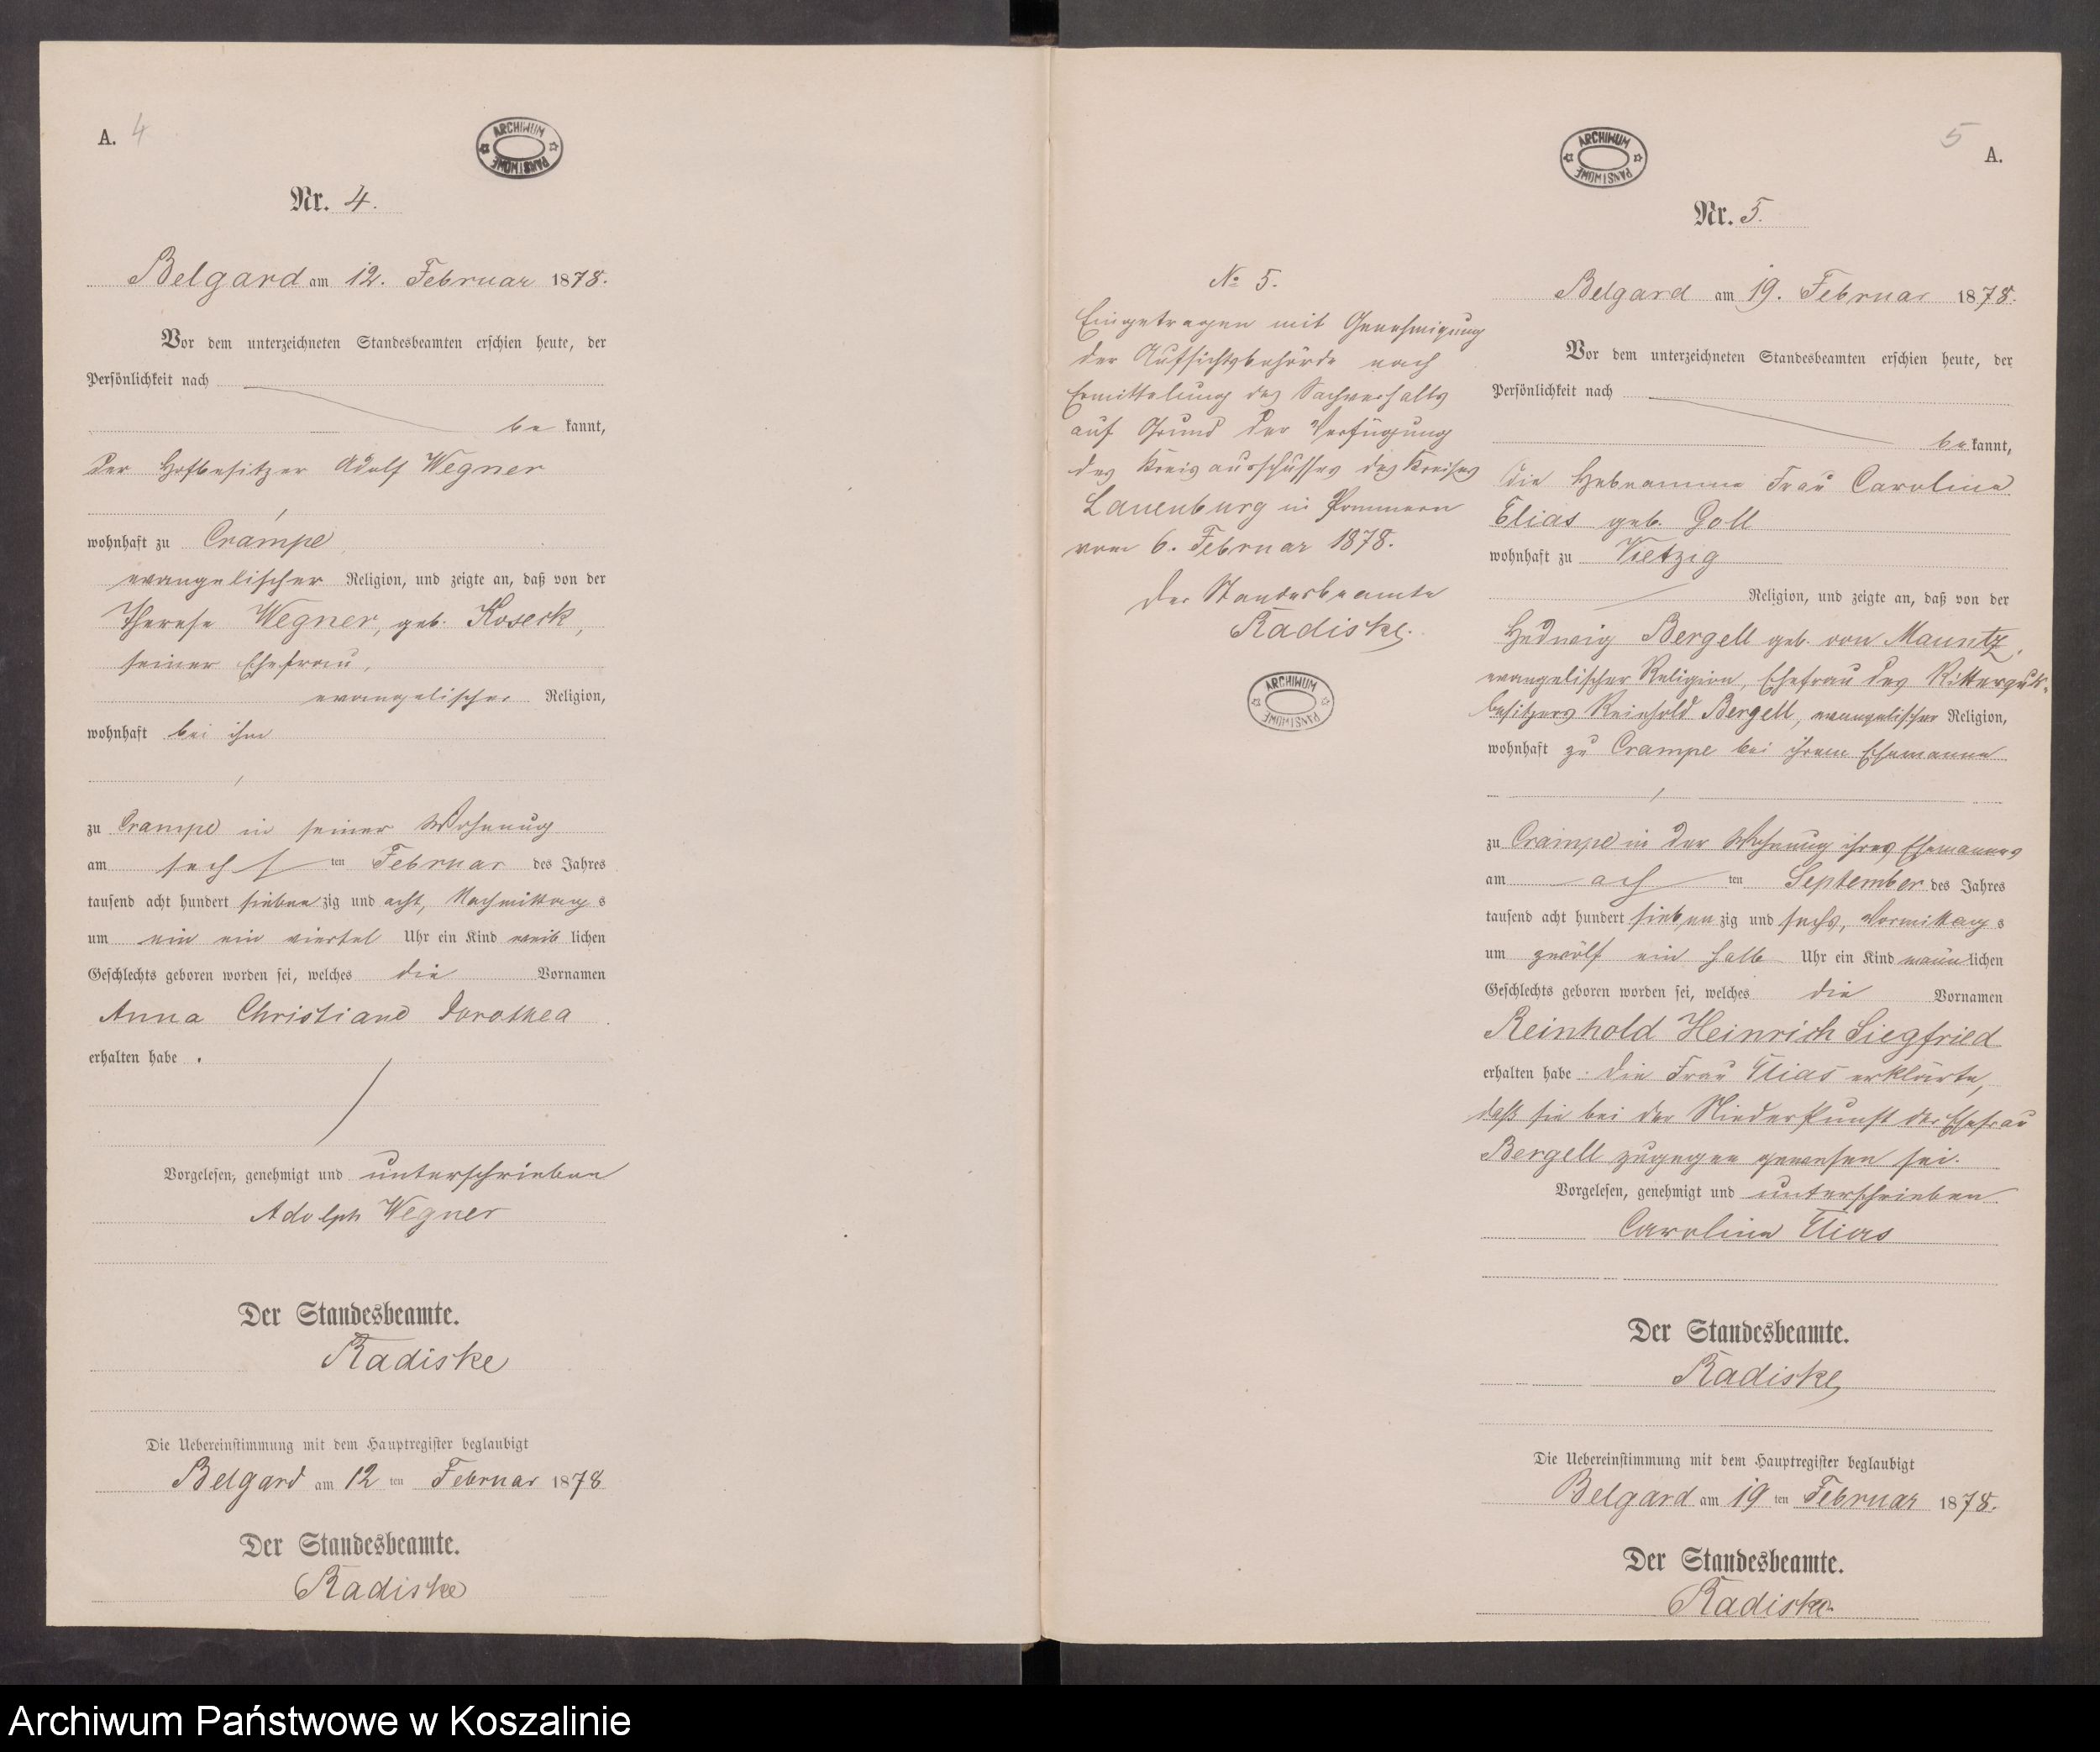 A. 4
ARCHIWUM PAŃSTWOWE
Nr. 4.
Belgard am 12. Februar 1878.
Vor dem unterzeichneten Standesbeamten erschien heute, der
Persönlichkeit nach
be kannt,
der Hofbesitzer Adolf Wegner
wohnhaft zu Crampe
evangelischer Religion, und zeigte an, daß von der
Therese Wegner, geb. Koseck,
seiner Ehefrau,
evangelischer Religion,
wohnhaft bei ihm
zu Crampe in seiner Wohnung
am sechsten Februar des Jahres
tausend acht hundert siebenzig und acht, Nachmittags
um ein ein viertel Uhr ein Kind weiblichen
Geschlechts geboren worden sei, welches die Vornamen
Anna Christiane Dorothea
erhalten habe.
Vorgelesen, genehmigt und unterschrieben
Adolph Wegner
Der Standesbeamte.
Radiske
Die Uebereinstimmung mit dem Hauptregister beglaubigt
Belgard am 12 ten Februar 1878
Der Standesbeamte.
Radiske
No 5.
Eingetragen mit Genehmigung
der Aufsichtsbehörde nach
Ermittelung des Sachverhalts
auf Grund der Verfügung
des Kreisausschusses des Kreises
Lauenburg in Pommern
vom 6. Februar 1878.
Der Standesbeamte
Radiske.
ARCHIWUM PAŃSTWOWE
5 A.
ARCHIWUM PAŃSTWOWE
Nr. 5.
Belgard am 19. Februar 1878.
Vor dem unterzeichneten Standesbeamten erschien heute, der
Persönlichkeit nach
bekannt,
die Hebeamme Frau Caroline
Elias geb. Goll
wohnhaft zu Vietzig
Religion, und zeigte an, daß von der
Hedwig Bergell geb. von Mauntz,
evangelischer Religion, Ehefrau des Ritterguts-
besitzers Reinhold Bergell, evangelischer Religion,
wohnhaft zu Crampe bei ihrem Ehemanne
zu Crampe in der Wohnung ihres Ehemannes
am achten September des Jahres
tausend acht hundert siebenzig und sechs, Vormittags
um zwölf ein halb Uhr ein Kind männlichen
Geschlechts geboren worden sei, welches die Vornamen
Reinhold Heinrich Siegfried
erhalten habe. Die Frau Elias erklärte,
daß sie bei der Niederkunft der Ehefrau
Bergell zugegen gewesen sei.
Vorgelesen, genehmigt und unterschrieben
Caroline Elias
Der Standesbeamte.
Radiske
Die Uebereinstimmung mit dem Hauptregister beglaubigt
Belgard am 19 ten Februar 1878.
Der Standesbeamte.
Radiske.
Archiwum Państwowe w Koszalinie